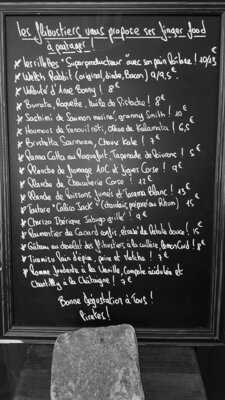 Les flibustiers vous propose ses finger food
à partager !
* les rillettes "Superproducteur" avec son pain Poilane ! 10/13 €
* Welsh Rabbit (original, birds, Bacon) 9/9,5 €
* d'Anne Bonny ! 8 €
* Burrata, Roquette, huile de Pistache ! 8 €
* Sashimi de Saumon mariné, granny Smith ! 10 €
* Houmous de Fenouil rôti, olives de Kalamata ! 6,5 €
* Bruschetta Saumon, Chou Kale ! 7 €
* Panna Cotta au Roquefort, Tapenade de poivrons ! 5 €
* Planche de fromage AOC et Tapas Corse ! 9 €
* Planche de Charcuterie Corse ! 12 €
* Planche de poissons fumés et Tarama Blanc ! 13 €
* Tartare "Calico Jack" 15 €
* Chorizo Ibérique Subaya grillé ! 9 €
* Parmentier de Canard confit, écrasé de Patate douce ! 15 €
* Gâteau au chocolat des Flibustiers à la cuillère, 8 €
* Tiramisu Pain d'épice, poire et Matcha ! 7 €
* Pomme fondante à la Vanille, Compotée acidulée et
Chantilly à la Châtaigne ! 7 €
Bonne Dégustation à Tous !
Pirates !